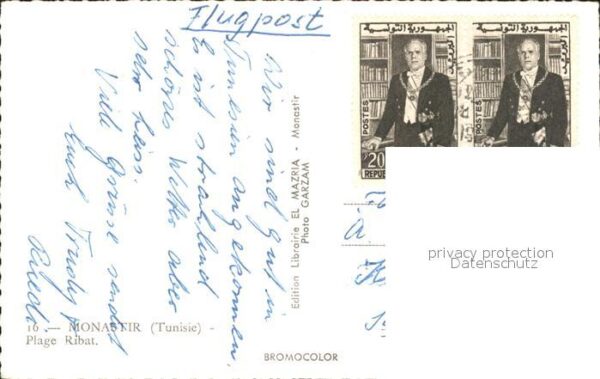 Flugpost
Wir sind gut in
Tunesien angekommen.
Es ist strahlend
schönes Wetter aber
sehr heiss.
Viele Grüsse sendet
Euch Trudy +
16 — MONASTIR (Tunisie) -
Plage Ribat.
Edition Librairie EL MAZRIA - Monastir
Photo GARZAM
BROMOCOLOR
الجمهورية التونسية
الجمهورية التونسية
البريد
البريد
POSTES
POSTES
20
REPUB
privacy protection
Datenschutz